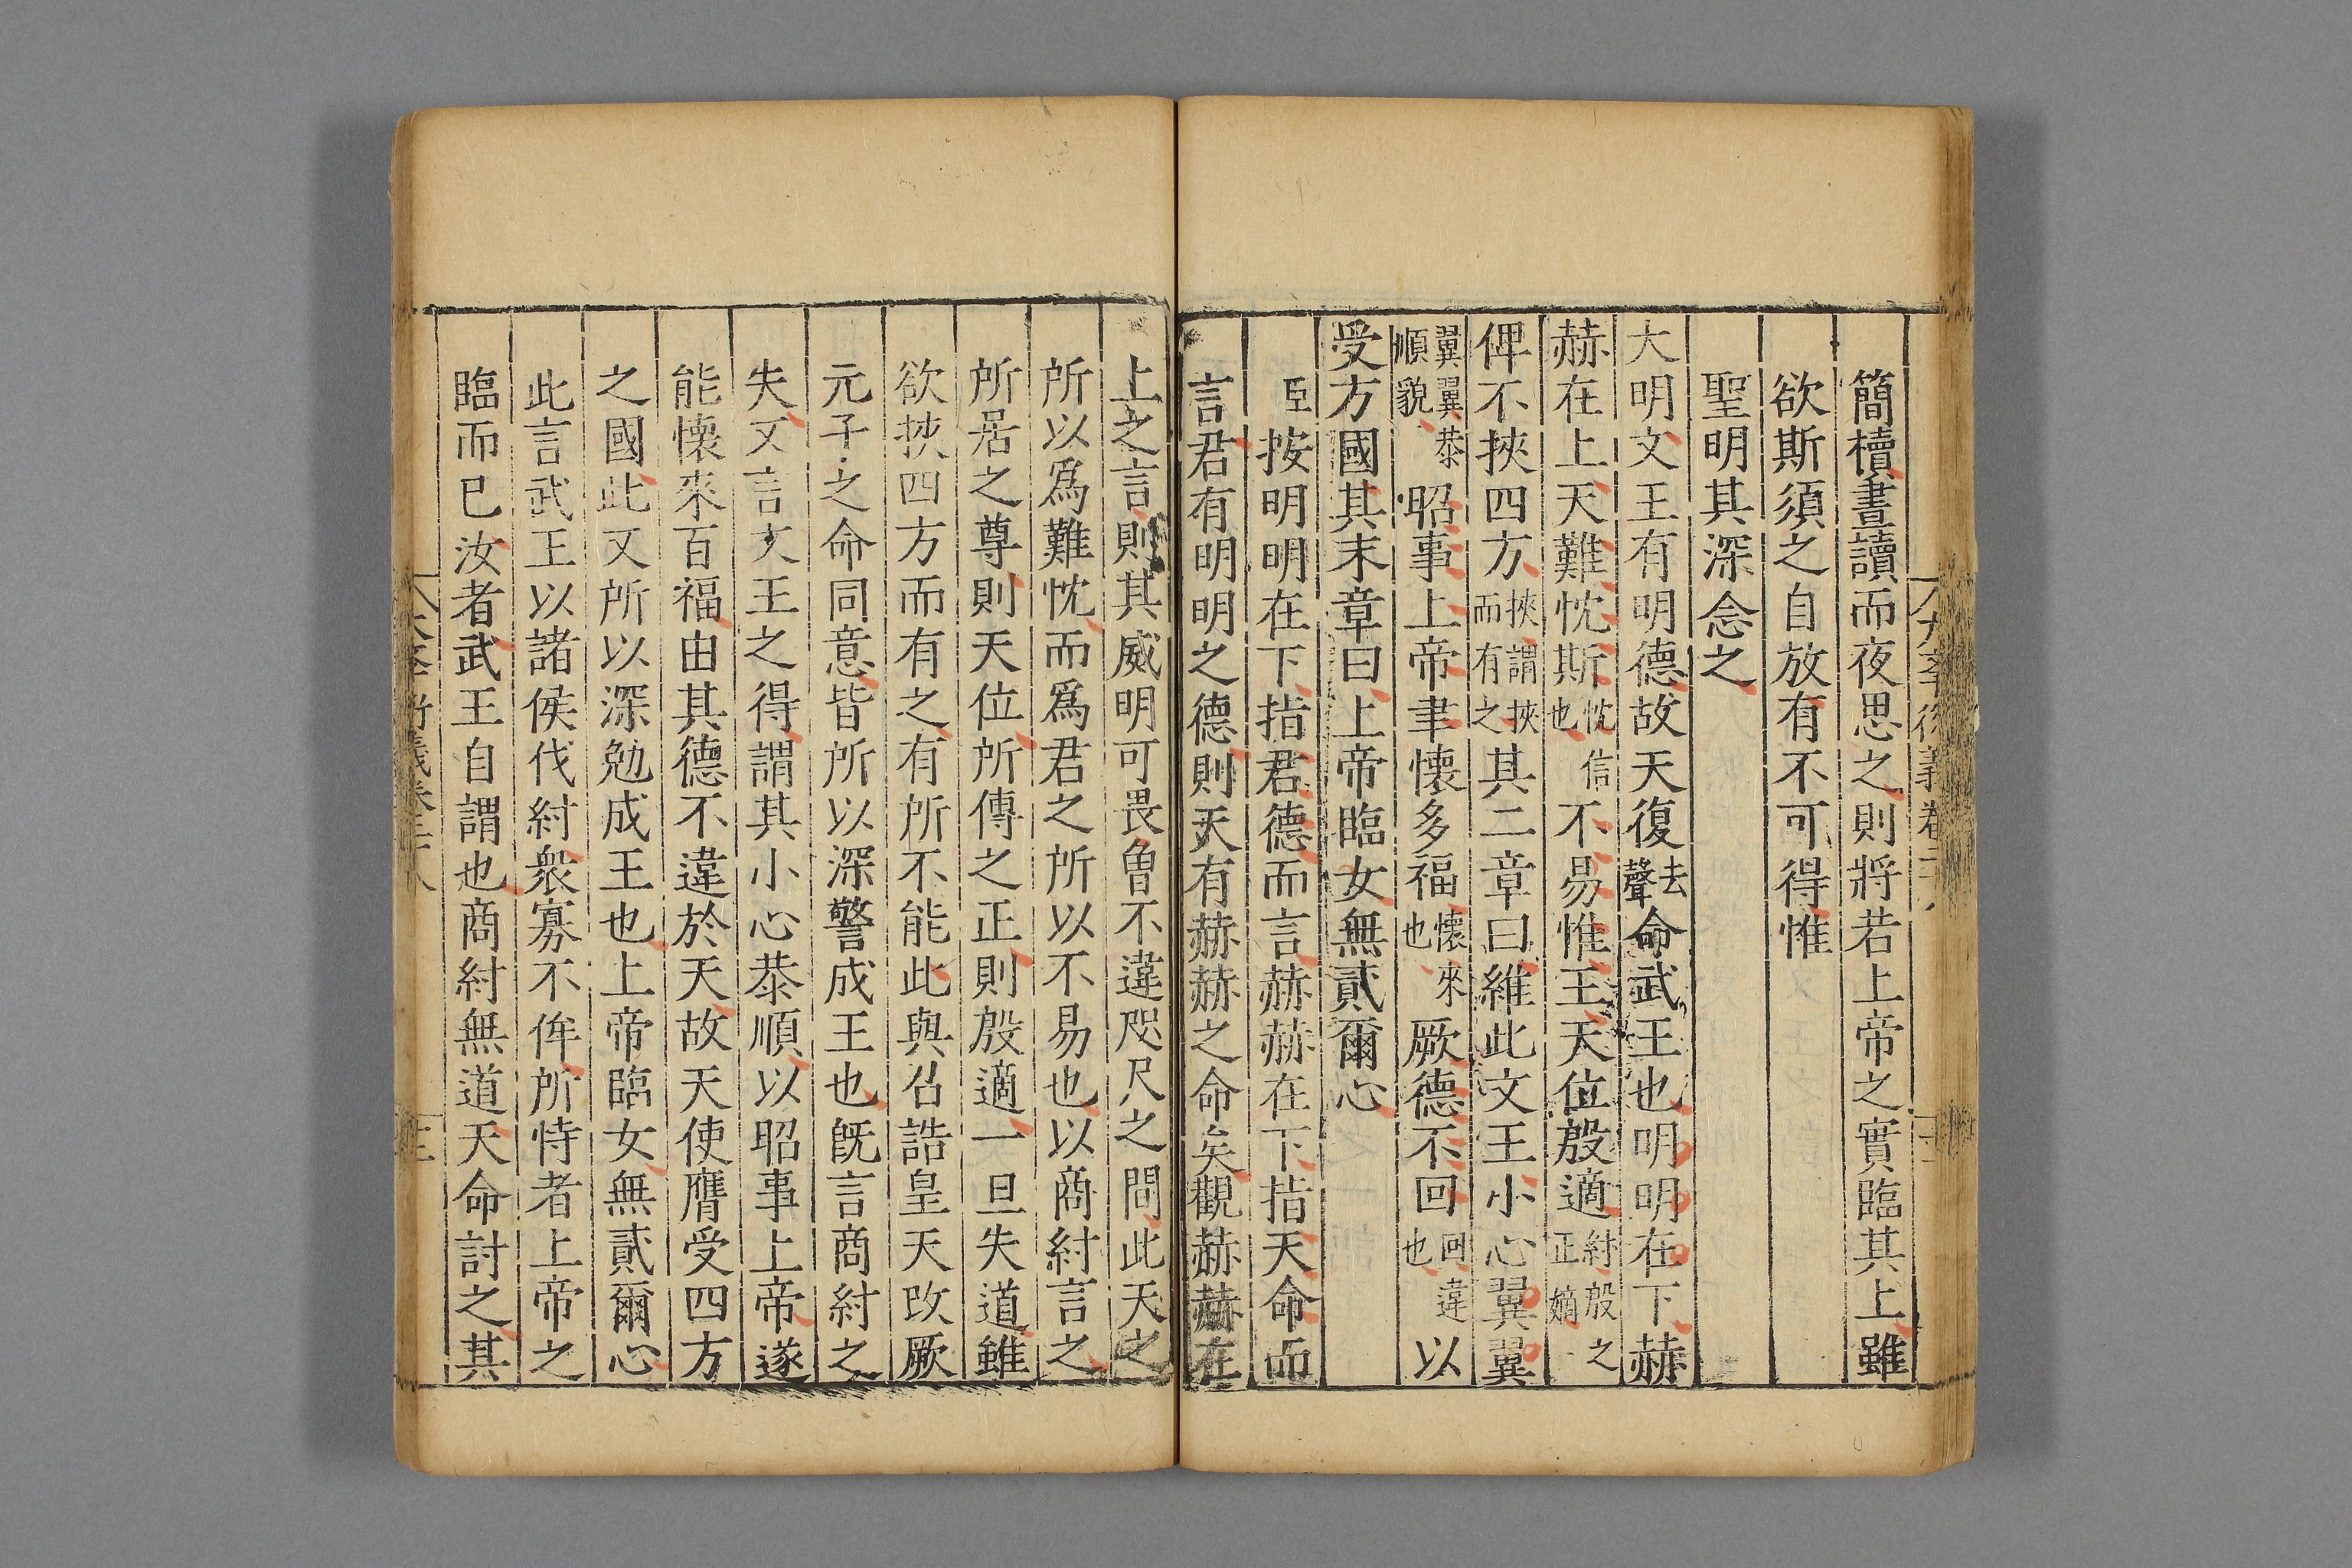 簡櫝晝讀而夜思之則將若上帝之實臨其上雖
欲斯須之自放有不可得惟
聖明其深念之
大明文王有明德故天復去聲命武王也明明在下赫
赫在上天難忱斯忱信也不易惟王天位殷適紂殷之正嫡
俾不挾四方挾謂挾而有之其二章曰維此文王小心翼翼
翼翼恭順貌昭事上帝聿懷多福懷來也厥德不回回違也以
受方國其末章曰上帝臨女無貳爾心
臣按明明在下指君德而言赫赫在下指天命而
言君有明明之德則天有赫赫之命矣觀赫赫在
上之言則其威明可畏曾不違咫尺之間此天之
所以爲難忱而爲君之所以不易也以商紂言之
所居之尊則天位所傳之正則殷適一旦失道雖
欲挾四方而有之有所不能此與召誥皇天改厥
元子之命同意皆所以深警成王也旣言商紂之
失又言文王之得謂其小心恭順以昭事上帝遂
能懷來百福由其德不違於天故天使膺受四方
之國此又所以深勉成王也上帝臨女無貳爾心
此言武王以諸侯伐紂衆寡不侔所恃者上帝之
臨而已汝者武王自謂也商紂無道天命討之其